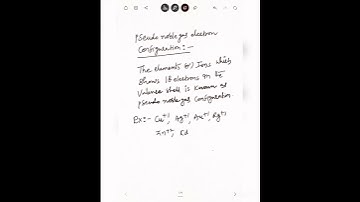 Pseudo noble gas electron
Configuration:-
The elements (or) Ions which
shows 18 electrons in the
Valence shell is known as
pseudo noble gas configuration.
Ex:- Cu+1, Ag+1, Au+1, Hg+2
Zn+2, Cd